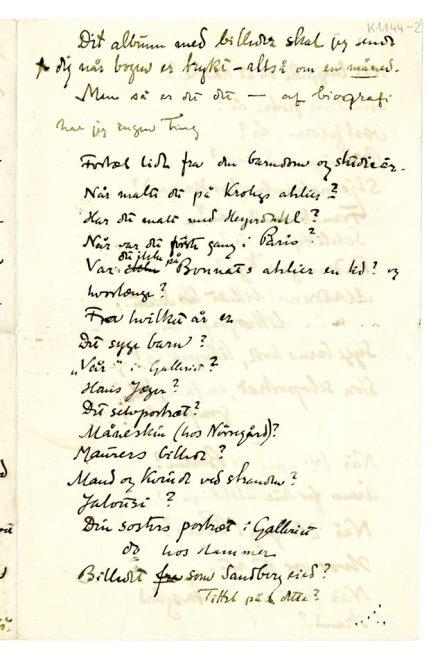 K1144-2
Dit album med billeder skal jeg sende
dig når bogen er trykt – altså om en måned.
Men så er det det – af biografi
har jeg ingen ting
Fortæl lidt fra din barndom og studieår.
Når malte du på Krohgs atelier?
Har du malt med Heyerdahl?
Når var du første gang i Paris?
Var du ikke på Bonnats atelier en tid? og
hvorlænge?
Fra hvilket år er
Det syge barn?
„Vår" i Galleriet?
Hans Jæger?
Dit selvportræt?
Måneskin (hos Nörregård)?
Maurers billede?
Mand og Kvinde ved stranden?
Jalousi?
Din søsters portræt i Galleriet
do hos Hammer
Billedet som Sandberg eied?
Tittel på dette?